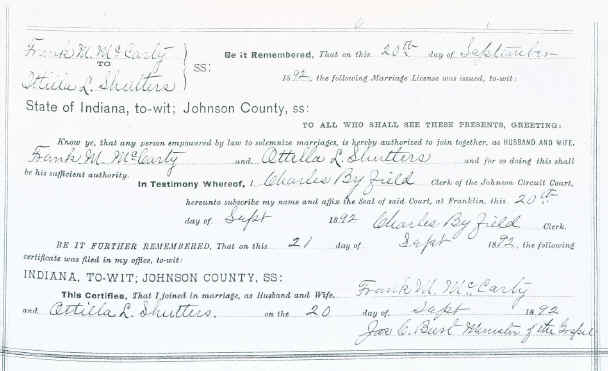 Frank M. McCarty
TO
Ottilla L. Shutters
SS:
Be it Remembered, That on this 20th day of September
1892, the following Marriage License was issued, to-wit:
State of Indiana, to-wit; Johnson County, ss:
TO ALL WHO SHALL SEE THESE PRESENTS, GREETING:
Know ye, that any person empowered by law to solemnize marriages, is hereby authorized to join together, as HUSBAND AND WIFE,
Frank M. McCarty and Ottilla L. Shutters and for so doing this shall
be his sufficient authority.
In Testimony Whereof, I Charles Byfield Clerk of the Johnson Circuit Court,
hereunto subscribe my name and affix the Seal of said Court, at Franklin, this 20th
day of Sept 1892 Charles Byfield Clerk.
BE IT FURTHER REMEMBERED, That on this 21 day of Sept 1892, the following
certificate was filed in my office, to-wit:
INDIANA, TO-WIT; JOHNSON COUNTY, SS:
This Certifies, That I joined in marriage, as Husband and Wife, Frank M. McCarty
and Ottilla L. Shutters. on the 20 day of Sept 1892
Jos C. Minister of the Gospel